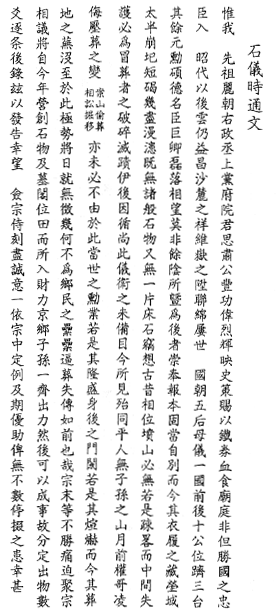 石儀時通文
惟我　先祖麗朝右政丞上黨府院君思肅公豐功偉烈輝映史策賜以鐵券血食廟庭非但勝國之忠
臣入　昭代以後雲仍益昌沙麓之祥維嶽之陞聯綿屢世　國朝五后母儀一國前後十公位躋三台
其餘元勳碩德名臣巨卿磊落相望莫非餘陰所曁爲後者崇奉報本固當自別而今其衣履之藏塋域
太半崩圮短碣幾盡漫漶旣無諸般石物又無一片床石竊想古昔相位墳山必無若是疎畧而中間失
護必爲冐葬者之破碎滅蹟伊後因循尚此儀衛之未備目今所見殆同平人無子孫之山月前權哥凌
侮壓葬之變 崇山偸葬相訟掘移 亦未必不由於此當世之勳業若是其隆盛身後之門闌若是其煊爀而今其葬
地之蕪沒至於此極勢將日就無徵幾何不爲鄉民之纍纍逼葬失傳如前也哉宗末等不勝痛迫聚宗
相議將自今年營創石物及墓閣位田而所入財力京鄉子孫一齊出力然後可以成事故分定出物數
爻逐條後錄玆以發告幸望　僉宗侍刻盡誠意一依宗中定例及期優助俾無不數停掇之恵幸甚